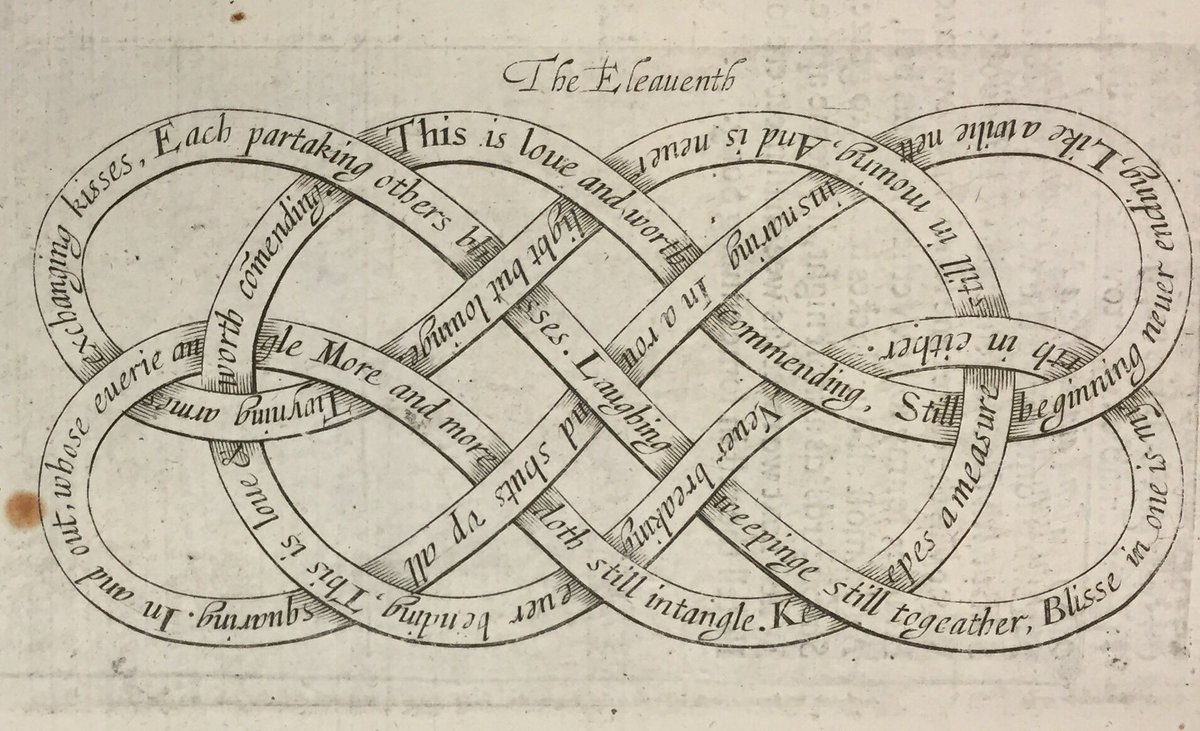 The Eleauenth
This is loue and worth commending,
Still beginning neuer ending,
Like a wilie nett insnaring
in a round shuts vp all squaring.
In and out, whose euerie angle
More and more doth still intangle.
Keepes a measure still in mouing,
And is neuer light but louinge,
Twyning armes, exchanging kisses,
Each partaking others blisses.
Laughing, weepinge still togeather,
Blisse in one is mirth in either.
Neuer breaking, euer bending,
This is loue & worth cōmending.